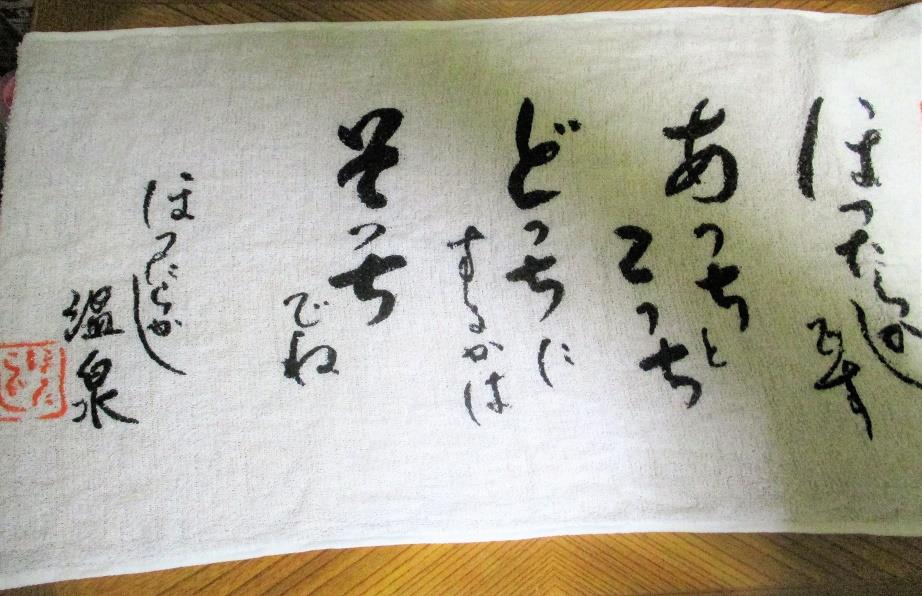 ほったらかしです
あっちと
こっち
どっちに
するかは
そっち
でね
ほったらかし
温泉